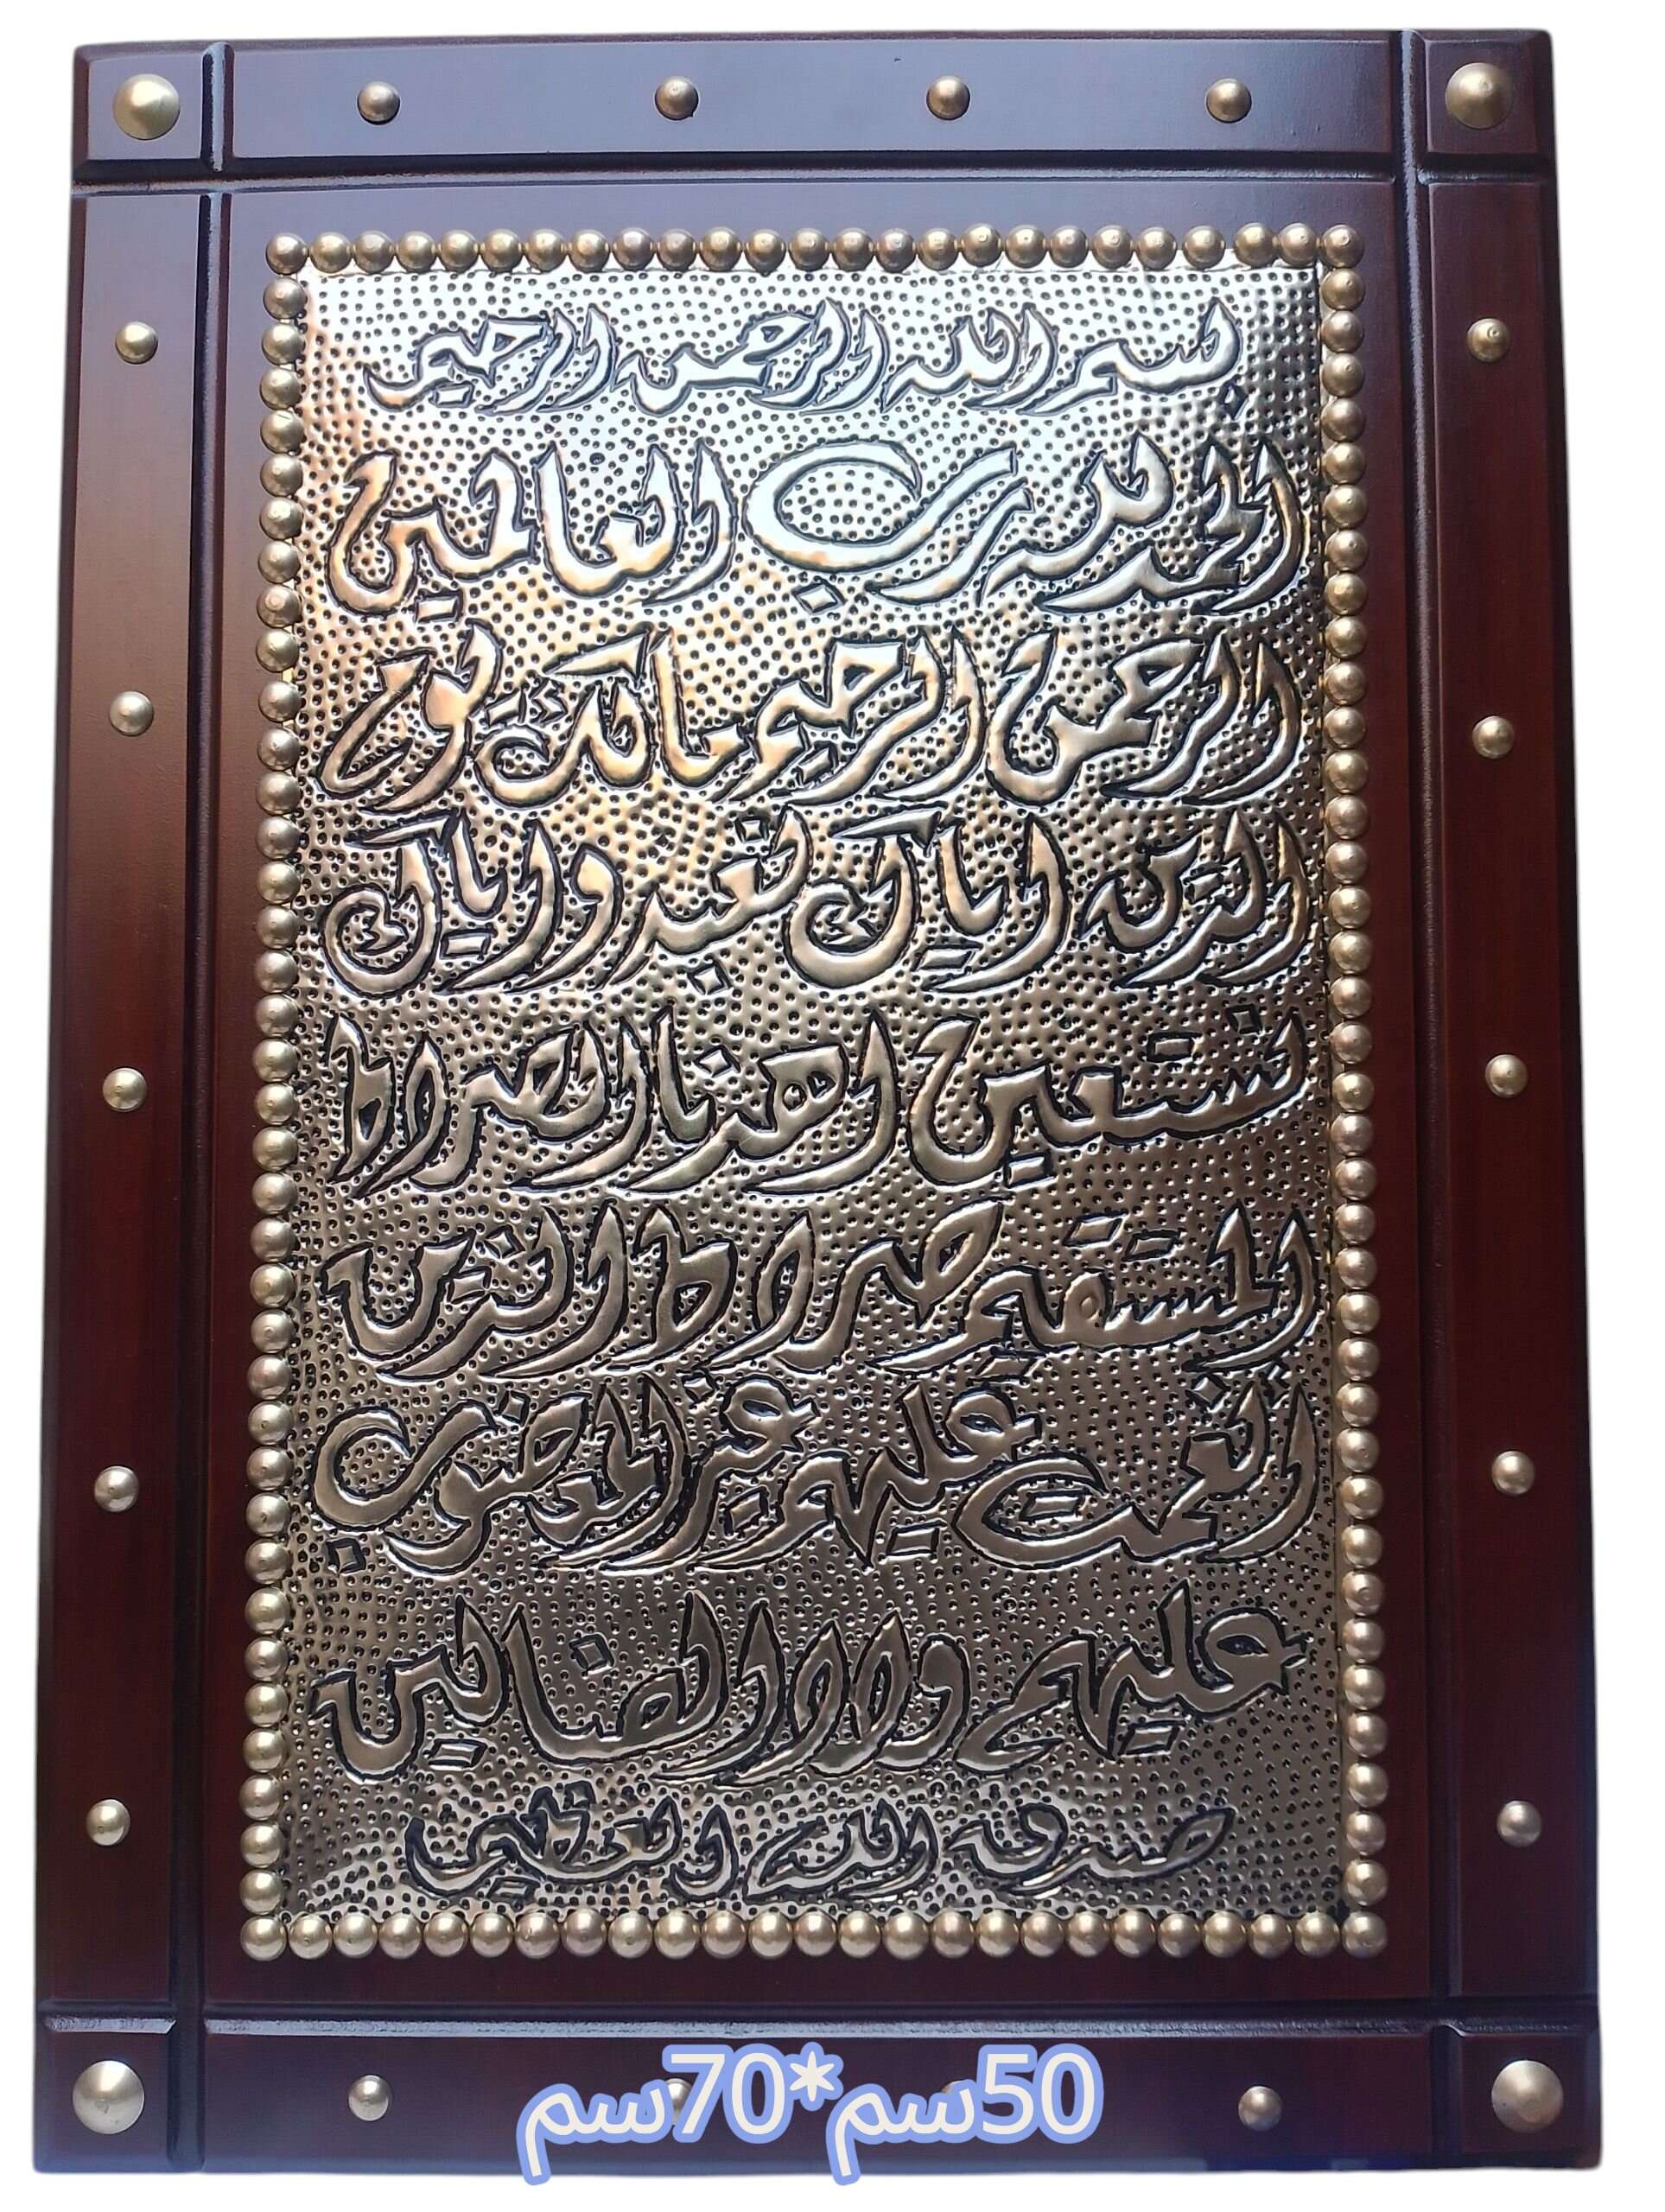 بسم الله الرحمن الرحيم
الحمد لله رب العالمين
الرحمن الرحيم مالك يوم
الدين اياك نعبد واياك
نستعين اهدنا الصراط
المستقيم صراط الذين
انعمت عليهم غير المغضوب
عليهم ولا الضالين
صدق الله العظيم
50سم*70سم